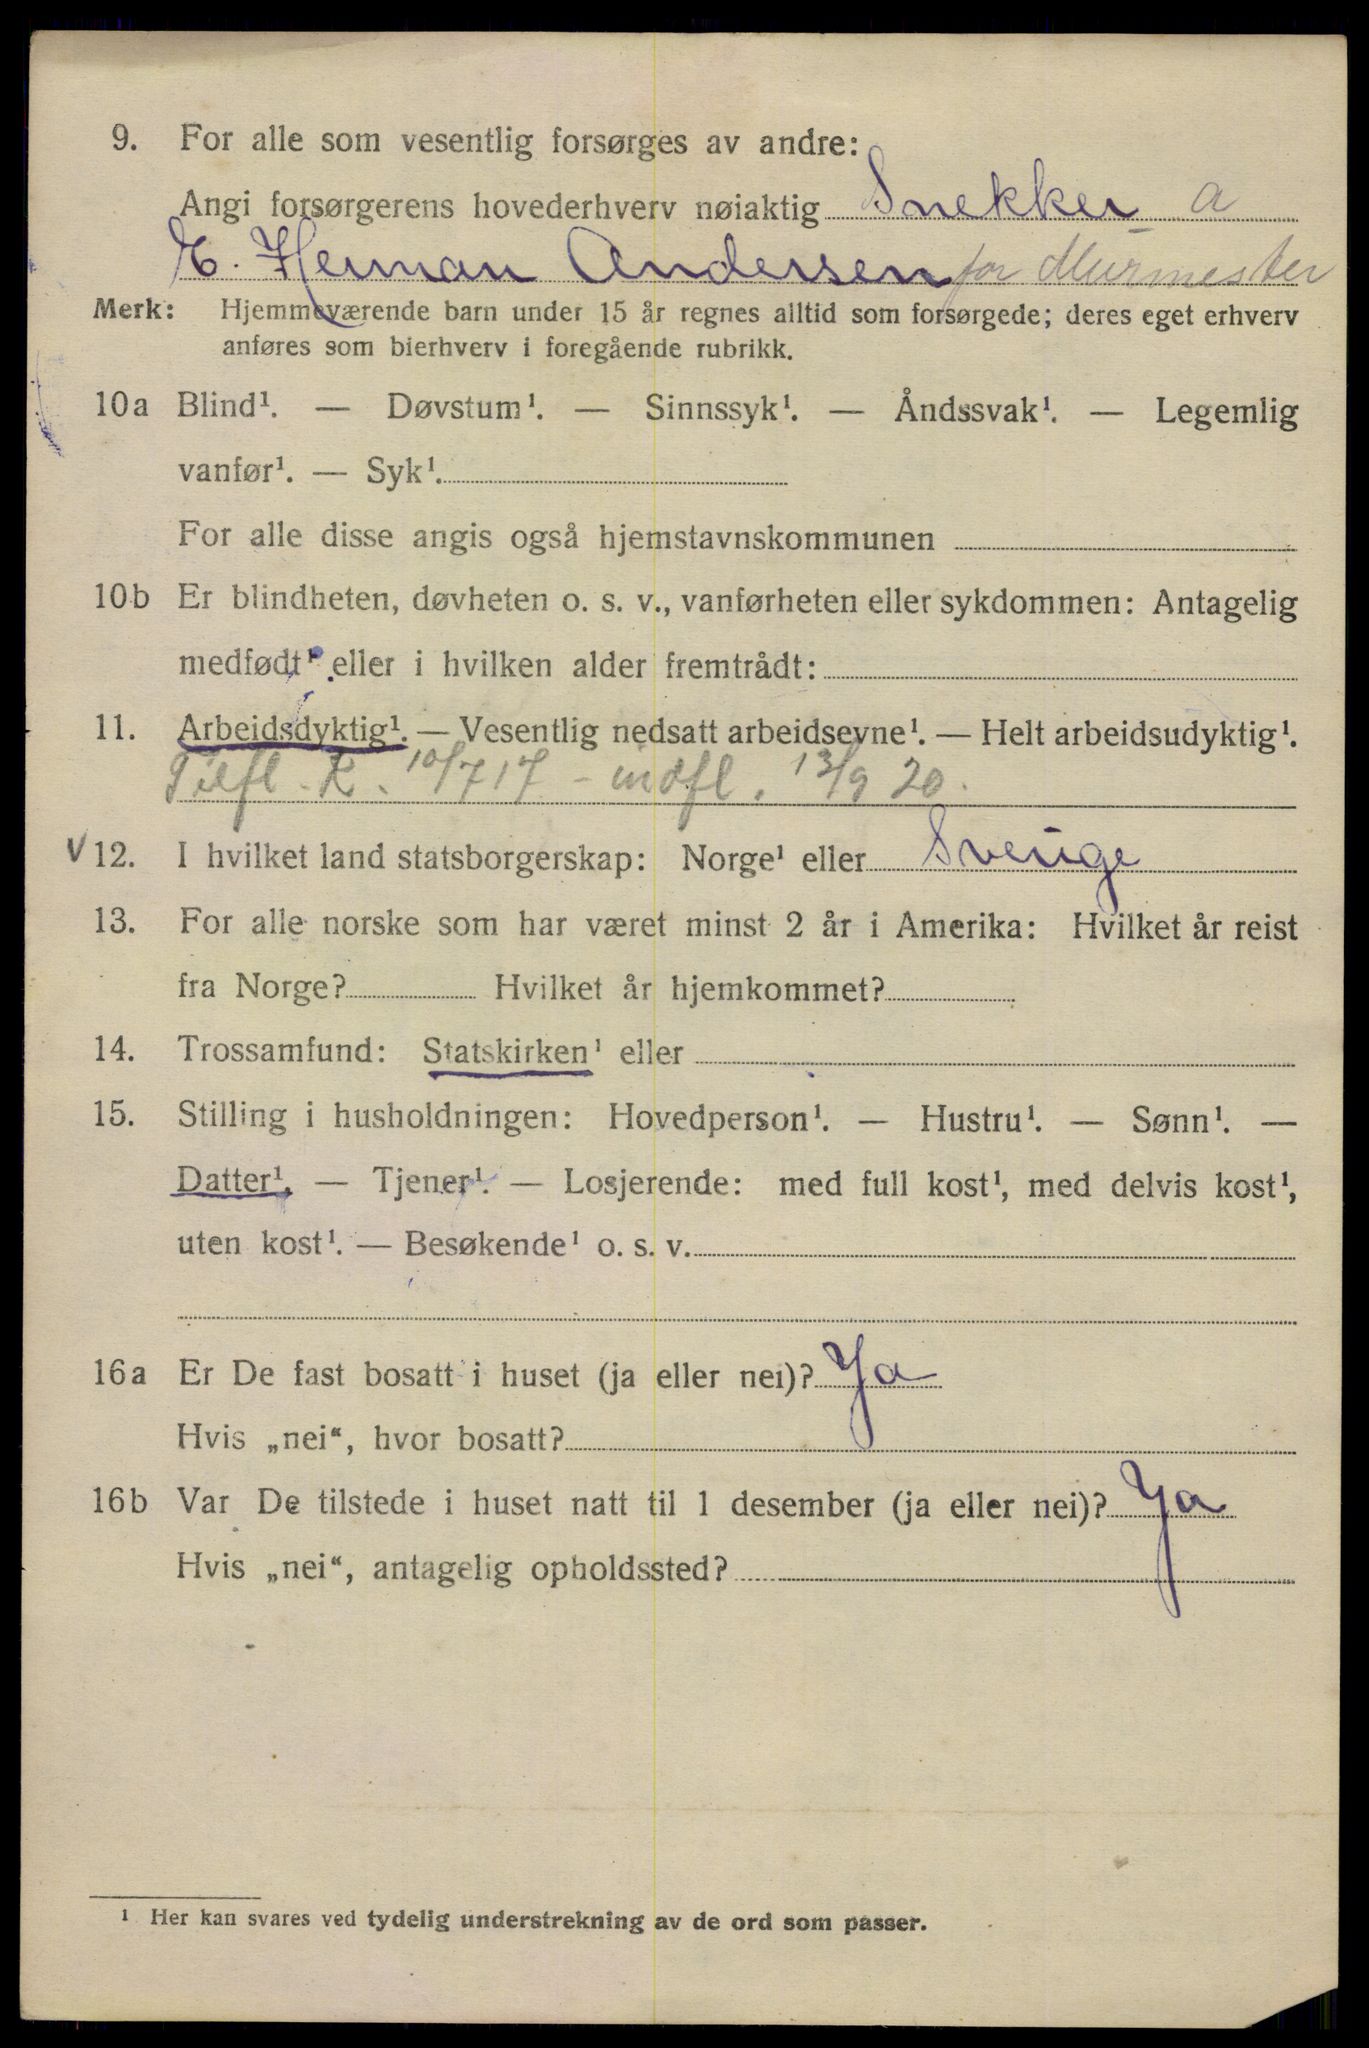 9. For alle som vesentlig forsørges av andre:
Angi forsørgerens hovederhverv nøiaktig Snekker a
E. Herman Andersen for Murmester
Merk: Hjemmeværende barn under 15 år regnes alltid som forsørgede; deres eget erhverv
anføres som bierhverv i foregående rubrikk.
10a Blind¹. — Døvstum¹. — Sinnssyk¹. — Åndssvak¹. — Legemlig
vanfør¹. — Syk¹.
For alle disse angis også hjemstavnskommunen
10b Er blindheten, døvheten o. s. v., vanførheten eller sykdommen: Antagelig
medfødt¹ eller i hvilken alder fremtrådt:
11. Arbeidsdyktig¹. — Vesentlig nedsatt arbeidsevne¹. — Helt arbeidsudyktig¹.
Tilfl. K. 10/7 17 - indfl. 13/9 20.
V 12. I hvilket land statsborgerskap: Norge¹ eller Sverige
13. For alle norske som har været minst 2 år i Amerika: Hvilket år reist
fra Norge? Hvilket år hjemkommet?
14. Trossamfund: Statskirken¹ eller
15. Stilling i husholdningen: Hovedperson¹. — Hustru¹. — Sønn¹. —
Datter¹. — Tjener¹. — Losjerende: med full kost¹, med delvis kost¹,
uten kost¹. — Besøkende¹ o. s. v.
16a Er De fast bosatt i huset (ja eller nei)? Ja
Hvis „nei“, hvor bosatt?
16b Var De tilstede i huset natt til 1 desember (ja eller nei)? Ja
Hvis „nei“, antagelig opholdssted?
¹ Her kan svares ved tydelig understrekning av de ord som passer.